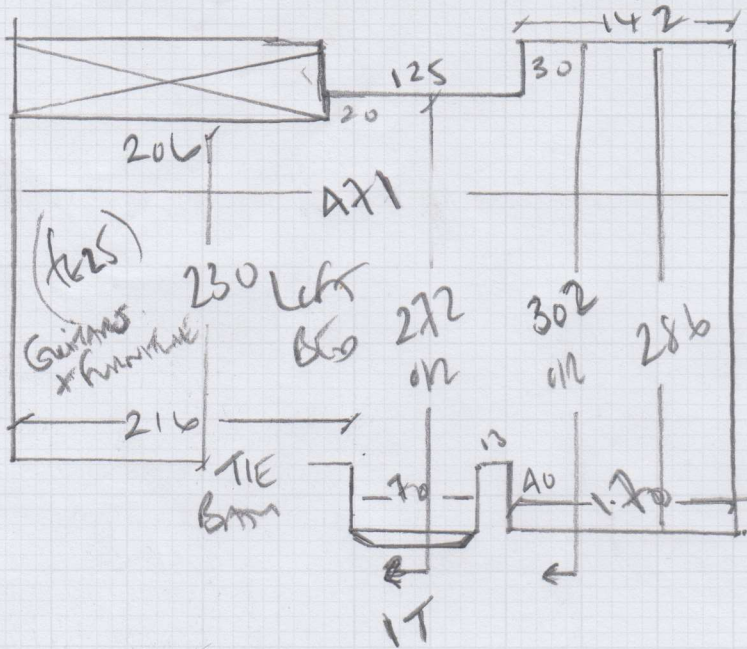 142
125
30
20
206
471
230
LOFT
BED
272
302
286
GUITARS
+ FURNITURE
216
TIE
13
70
40
1.70
1T